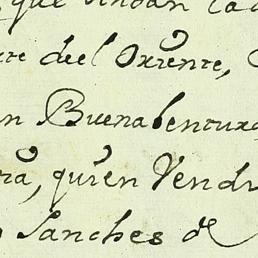 que
te del Oriente,
n Buenabentura
ra, quien Vendi
Sanches de